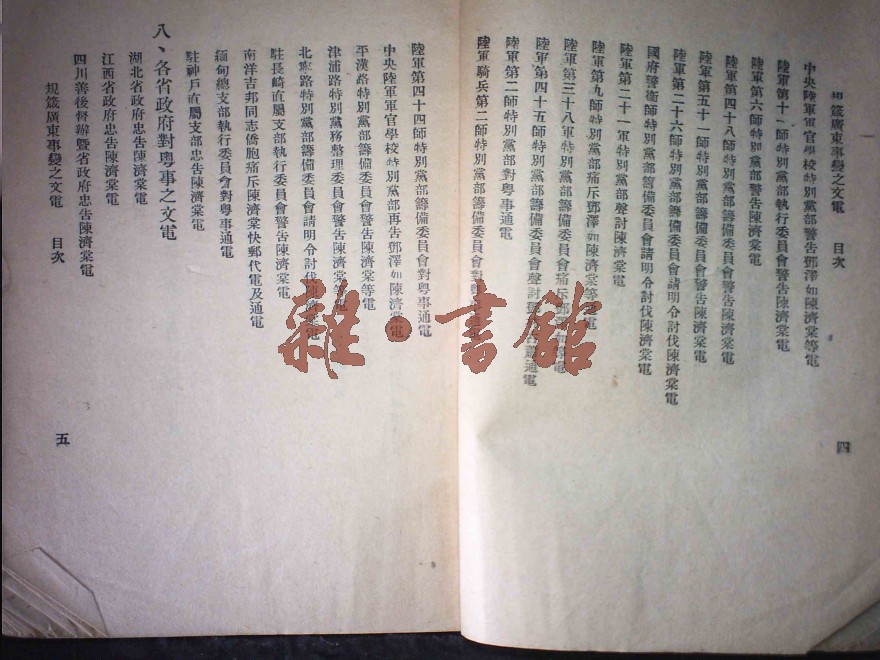 規箴廣東事變之文電 目次 四
中央陸軍軍官學校特別黨部警告鄧澤如陳濟棠等電
陸軍第十一師特別黨部執行委員會警告陳濟棠電
陸軍第六師特別黨部警告陳濟棠電
陸軍第四十八師特別黨部籌備委員會警告陳濟棠電
陸軍第五十一師特別黨部籌備委員會警告陳濟棠電
陸軍第二十六師特別黨部籌備委員會請明令討伐陳濟棠電
國府警衛師特別黨部籌備委員會請明令討伐陳濟棠電
陸軍第二十一軍特別黨部聲討陳濟棠電
陸軍第九師特別黨部痛斥鄧澤如陳濟棠等電
陸軍第三十八軍特別黨部籌備委員會痛斥鄧等電
陸軍第四十五師特別黨部籌備委員會聲討通電
陸軍第二師特別黨部對粵事通電
陸軍騎兵第二師特別黨部籌備委員會對粵事通電
陸軍第四十四師特別黨部籌備委員會對粵事通電
中央陸軍軍官學校特別黨部再告鄧澤如陳濟棠電
平漢路特別黨部籌備委員會警告陳濟棠等電
津浦路特別黨務整理委員會警告陳濟棠等電
北寧路特別黨部籌備委員會請明令討伐陳濟棠電
駐長崎直屬支部執行委員會警告陳濟棠電
南洋吉邦同志僑胞痛斥陳濟棠快郵代電及通電
緬甸總支部執行委員會對粵事通電
駐神戶直屬支部忠告陳濟棠電
八、各省政府對粵事之文電
湖北省政府忠告陳濟棠電
江西省政府忠告陳濟棠電
四川善後督辦暨省政府忠告陳濟棠電
規箴廣東事變之文電 目次 五
雜·書館